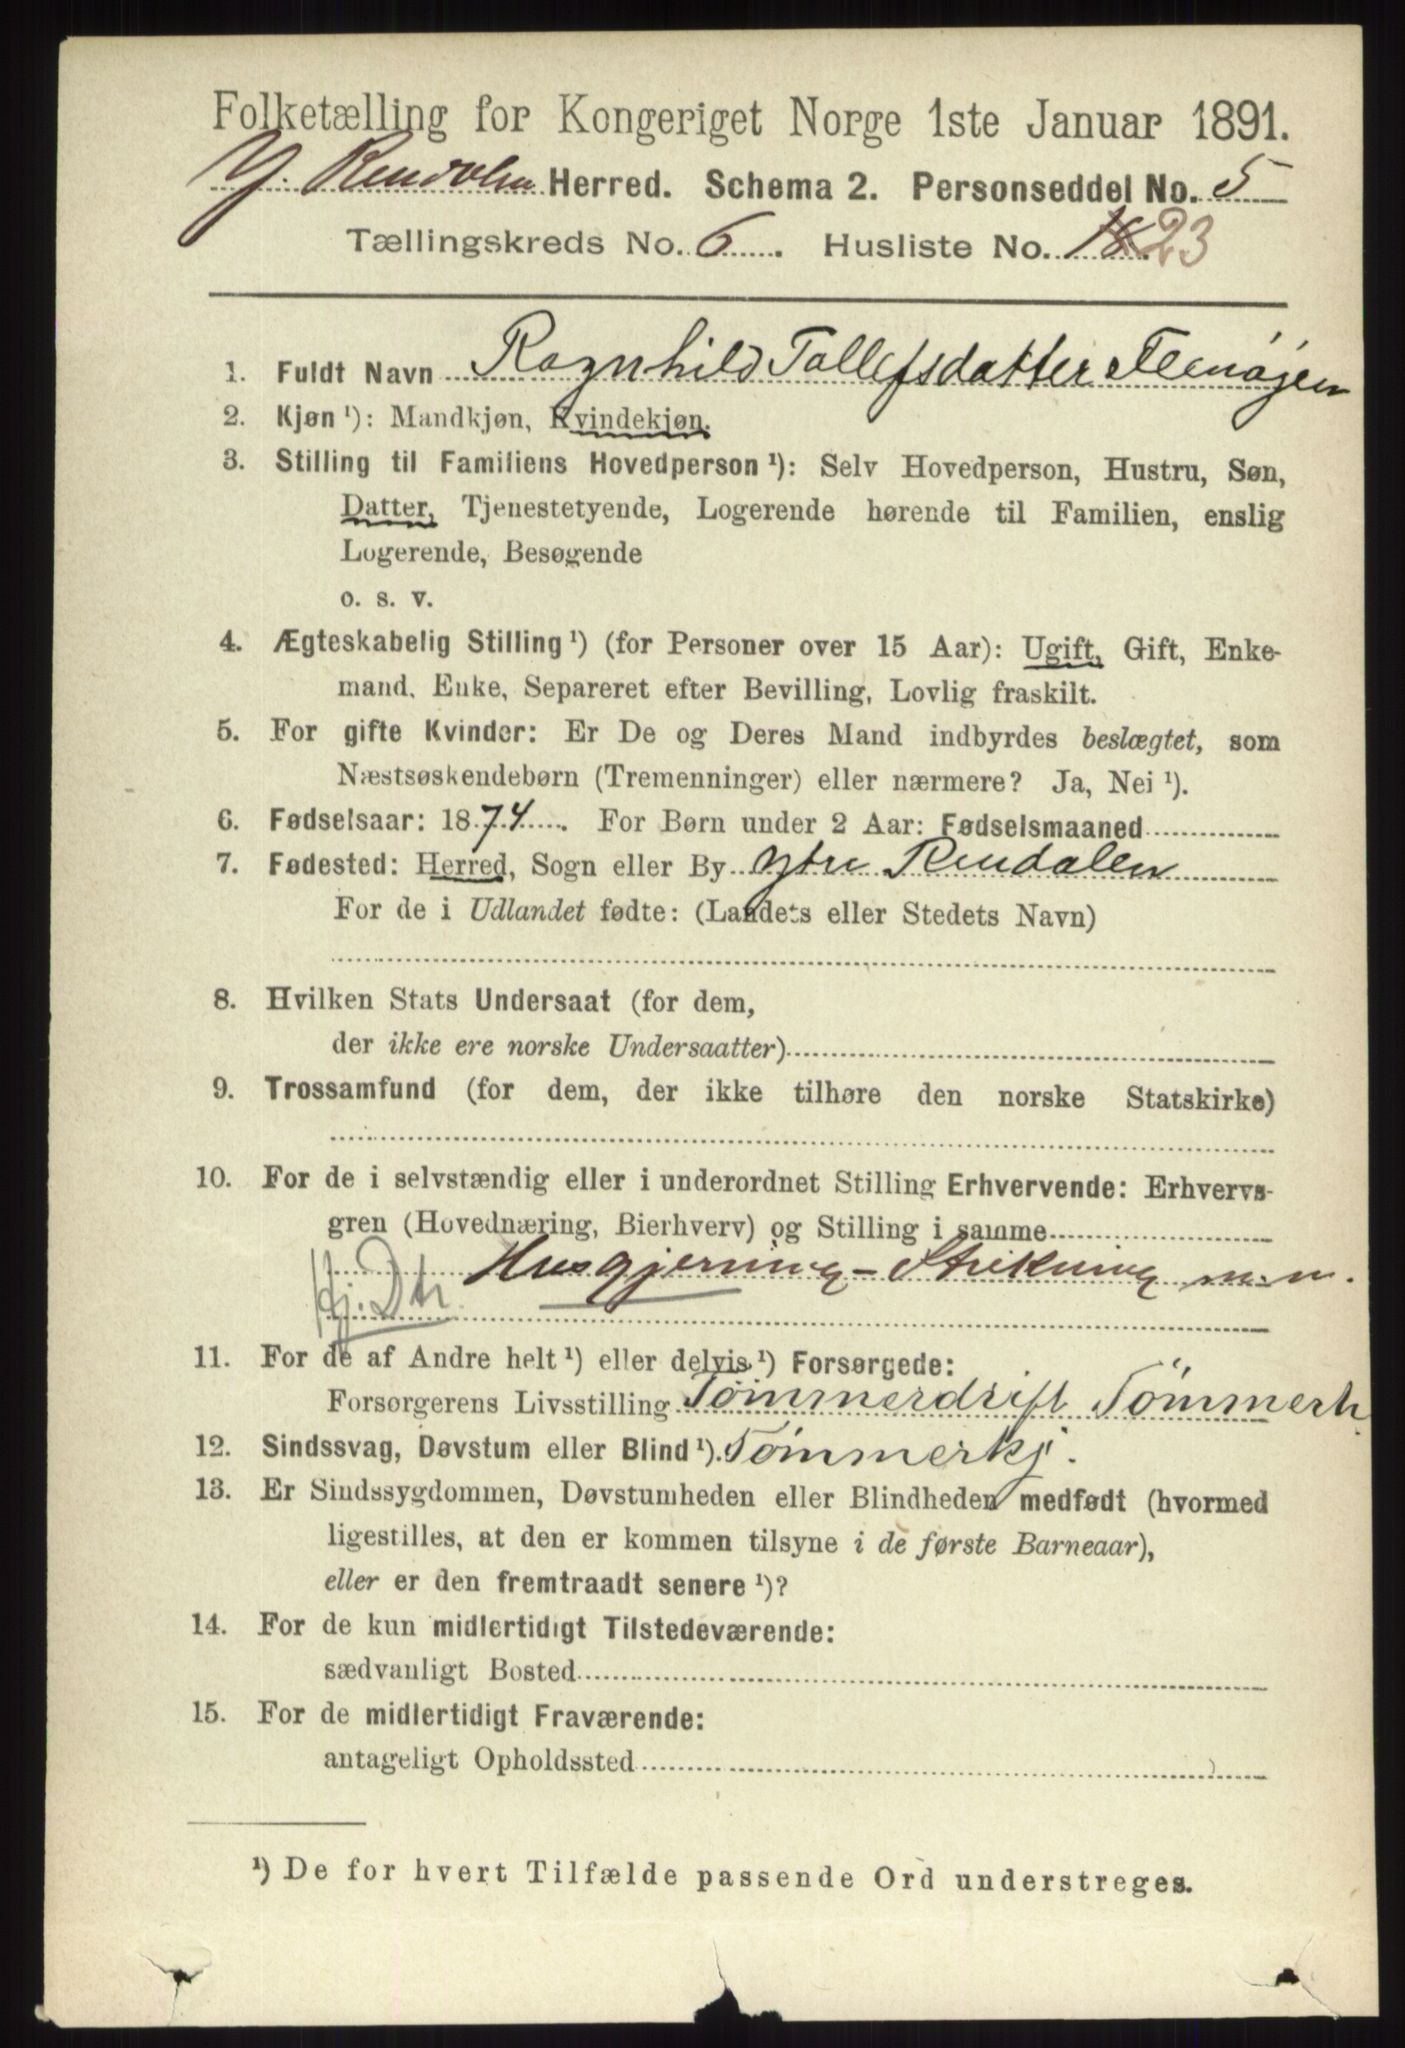 Folketælling for Kongeriget Norge 1ste Januar 1891.
Y. Rendalen Herred. Schema 2. Personseddel No. 5
Tællingskreds No. 6. Husliste No. 18. 23
1. Fuldt Navn Ragnhild Tollefsdatter
2. Kjøn ¹): Mandkjøn, Kvindekjøn.
3. Stilling til Familiens Hovedperson ¹): Selv Hovedperson, Hustru, Søn,
Datter, Tjenestetyende, Logerende hørende til Familien, enslig
Logerende, Besøgende
o. s. v.
4. Ægteskabelig Stilling ¹) (for Personer over 15 Aar): Ugift, Gift, Enke-
mand, Enke, Separeret efter Bevilling, Lovlig fraskilt.
5. For gifte Kvinder: Er De og Deres Mand indbyrdes beslægtet, som
Næstsøskendebørn (Tremenninger) eller nærmere? Ja, Nei ¹).
6. Fødselsaar: 1874. For Børn under 2 Aar: Fødselsmaaned
7. Fødested: Herred, Sogn eller By Ytre Rendalen
For de i Udlandet fødte: (Landets eller Stedets Navn)
8. Hvilken Stats Undersaat (for dem,
der ikke ere norske Undersaatter)
9. Trossamfund (for dem, der ikke tilhøre den norske Statskirke)
10. For de i selvstændig eller i underordnet Stilling Erhvervende: Erhvervs-
gren (Hovednæring, Bierhverv) og Stilling i samme
Husgjerning - Strikning m.m.
Hj. Dtr.
11. For de af Andre helt ¹) eller delvis ¹) Forsørgede:
Forsørgerens Livsstilling Tømmerdrift Tømmerh
12. Sindssvag, Døvstum eller Blind ¹). Tømmerkj.
13. Er Sindssygdommen, Døvstumheden eller Blindheden medfødt (hvormed
ligestilles, at den er kommen tilsyne i de første Barneaar),
eller er den fremtraadt senere ¹)?
14. For de kun midlertidigt Tilstedeværende:
sædvanligt Bosted
15. For de midlertidigt Fraværende:
antageligt Opholdssted
¹) De for hvert Tilfælde passende Ord understreges.